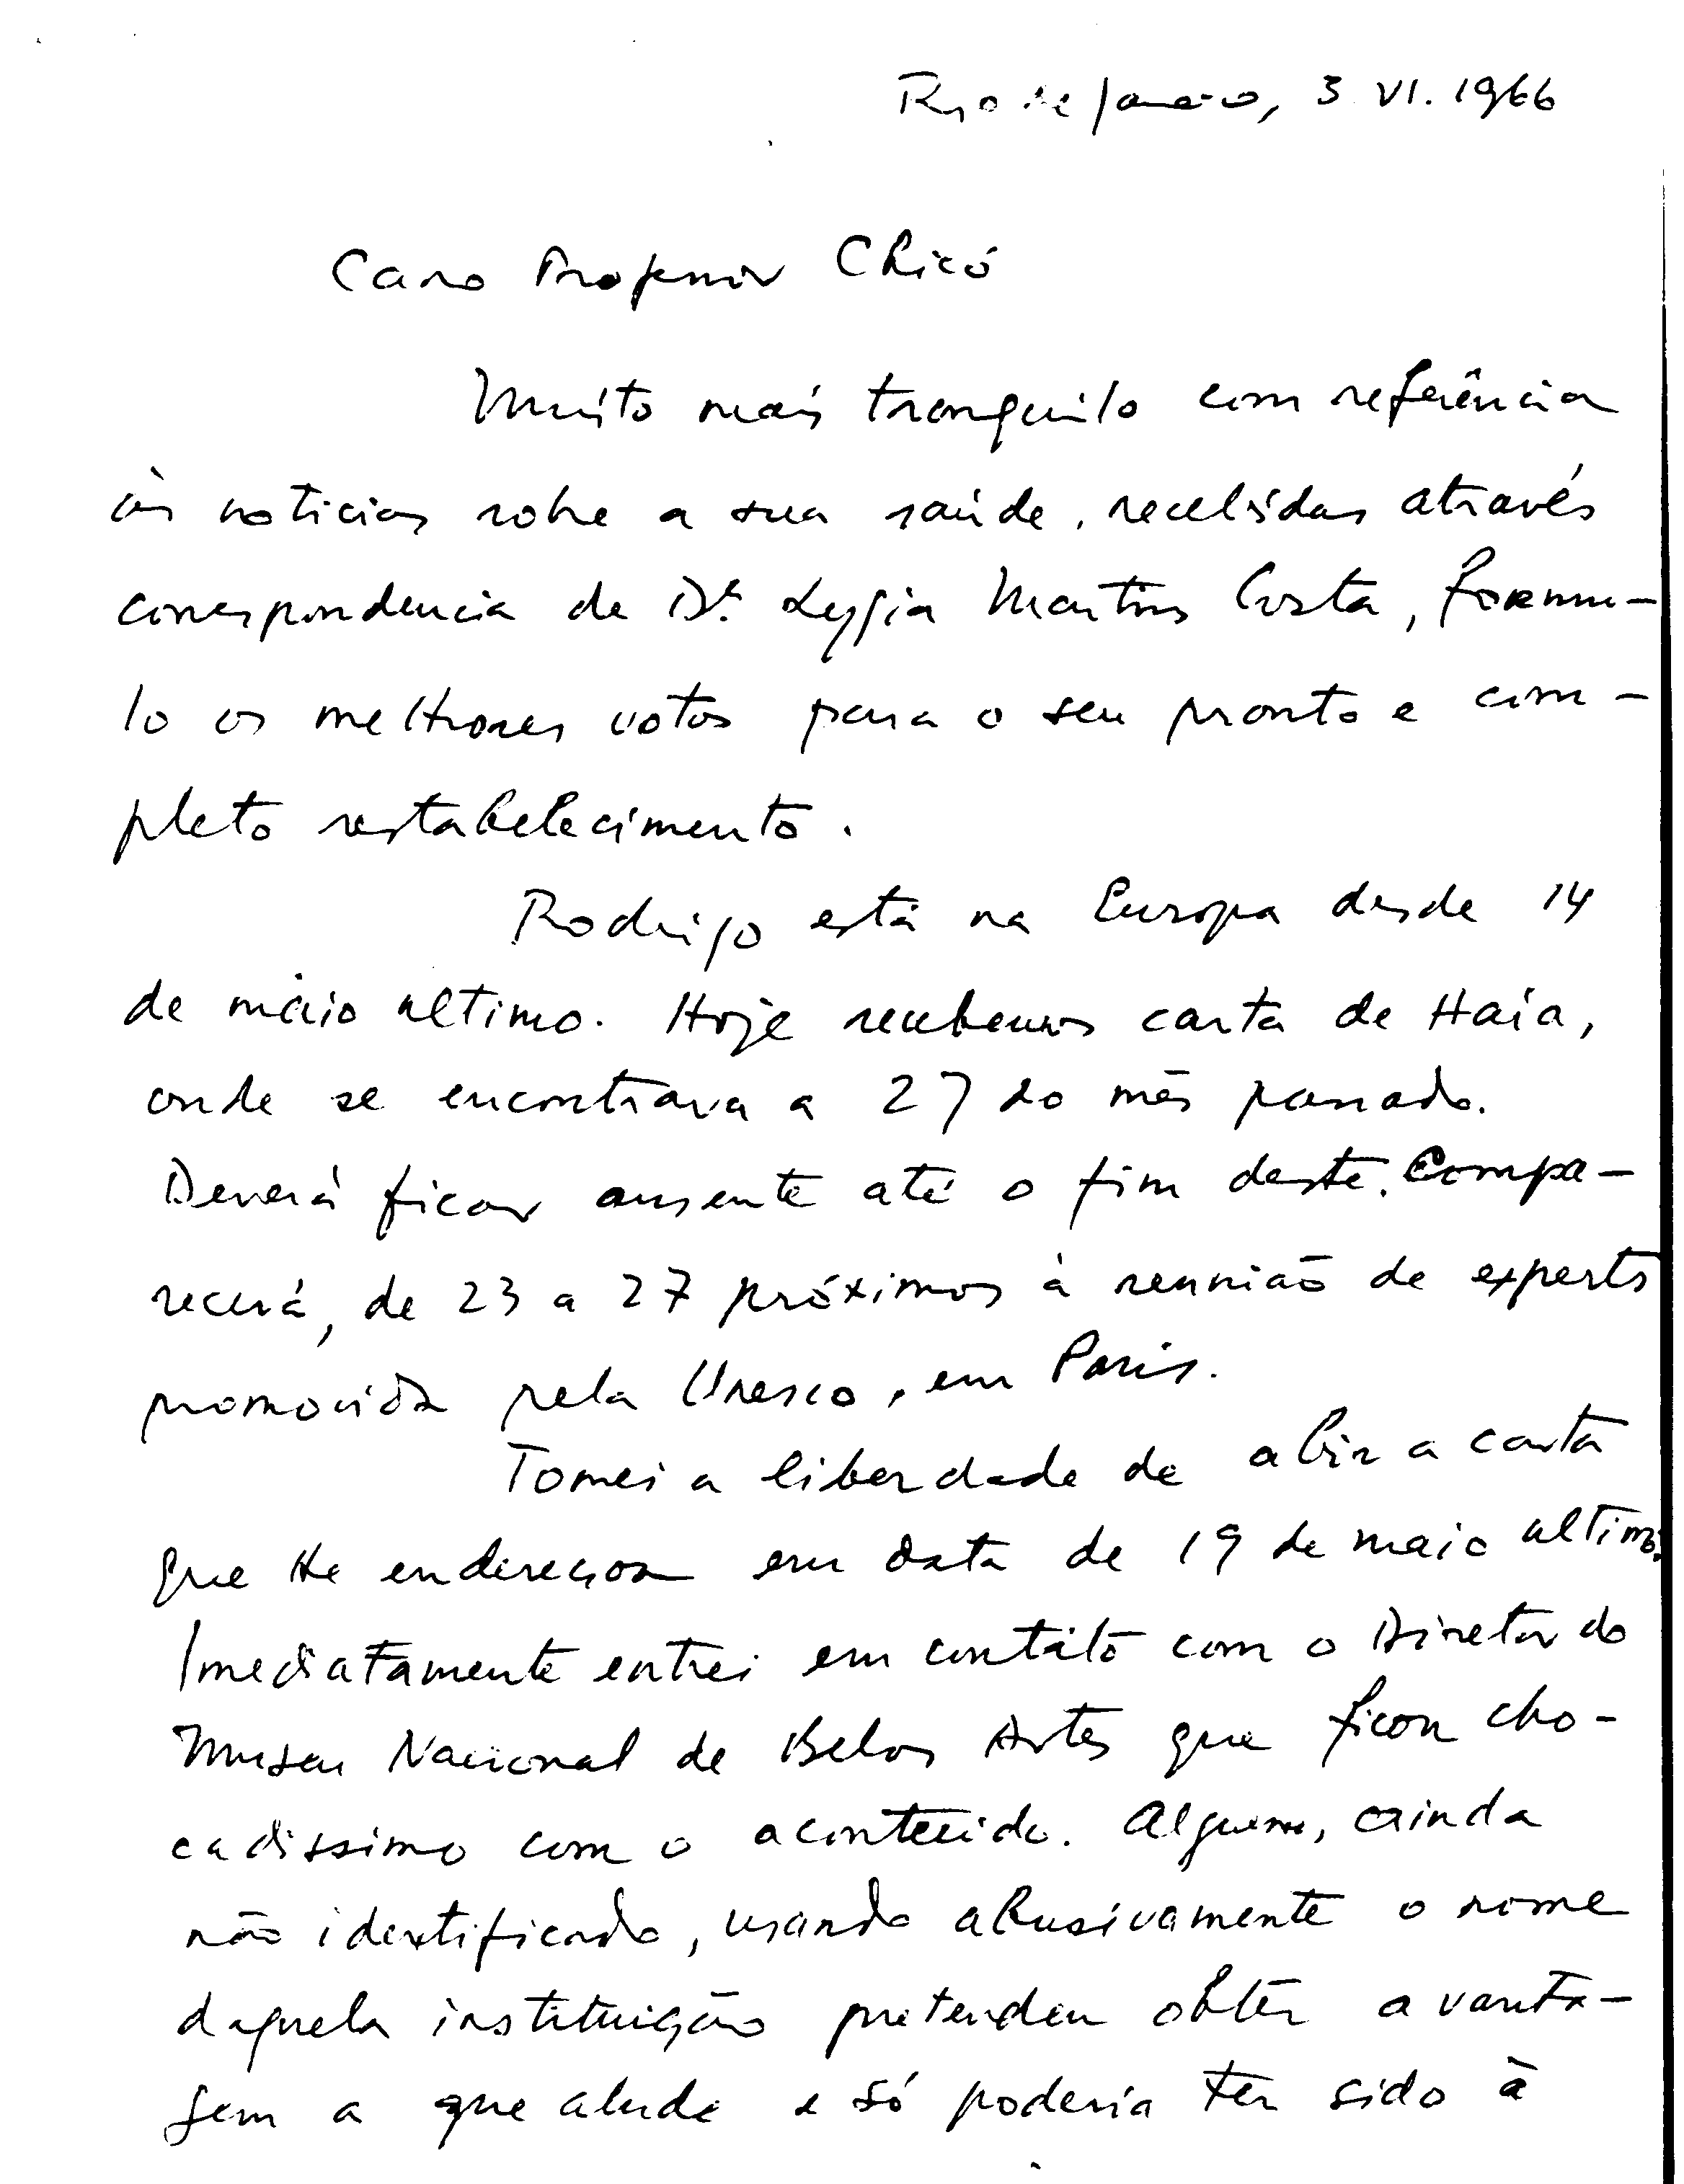 Rio de Janeiro, 3 VI. 1966
Caro Professor Chicó
Muito mais tranquilo com referência
às noticias sobre a sua saúde, recebidas através
correspondencia de Dª. Lygia Martins Costa, formu-
lo os melhores votos para o seu pronto e com-
pleto restabelecimento.
Rodrigo está na Europa desde 14
de maio ultimo. Hoje recebemos carta de Haia,
onde se encontrava a 27 do mês passado.
Deverá ficar ausente até o fim deste. Compa-
recerá, de 23 a 27 próximos à reunião de experts
promovida pela Unesco, em Paris.
Tomei a liberdade de abir a carta
que lhe endereçou em data de 19 de maio ultimo.
Imediatamente entrei em contáto com o Diretor do
Museu Nacional de Belas Artes que ficou cho-
cadissimo com o acontecido. Alguem, ainda
não identificado, usando abusivamente o nome
daquela instituição pretendeu obter a vanta-
gem a que alude e só poderia ter sido à